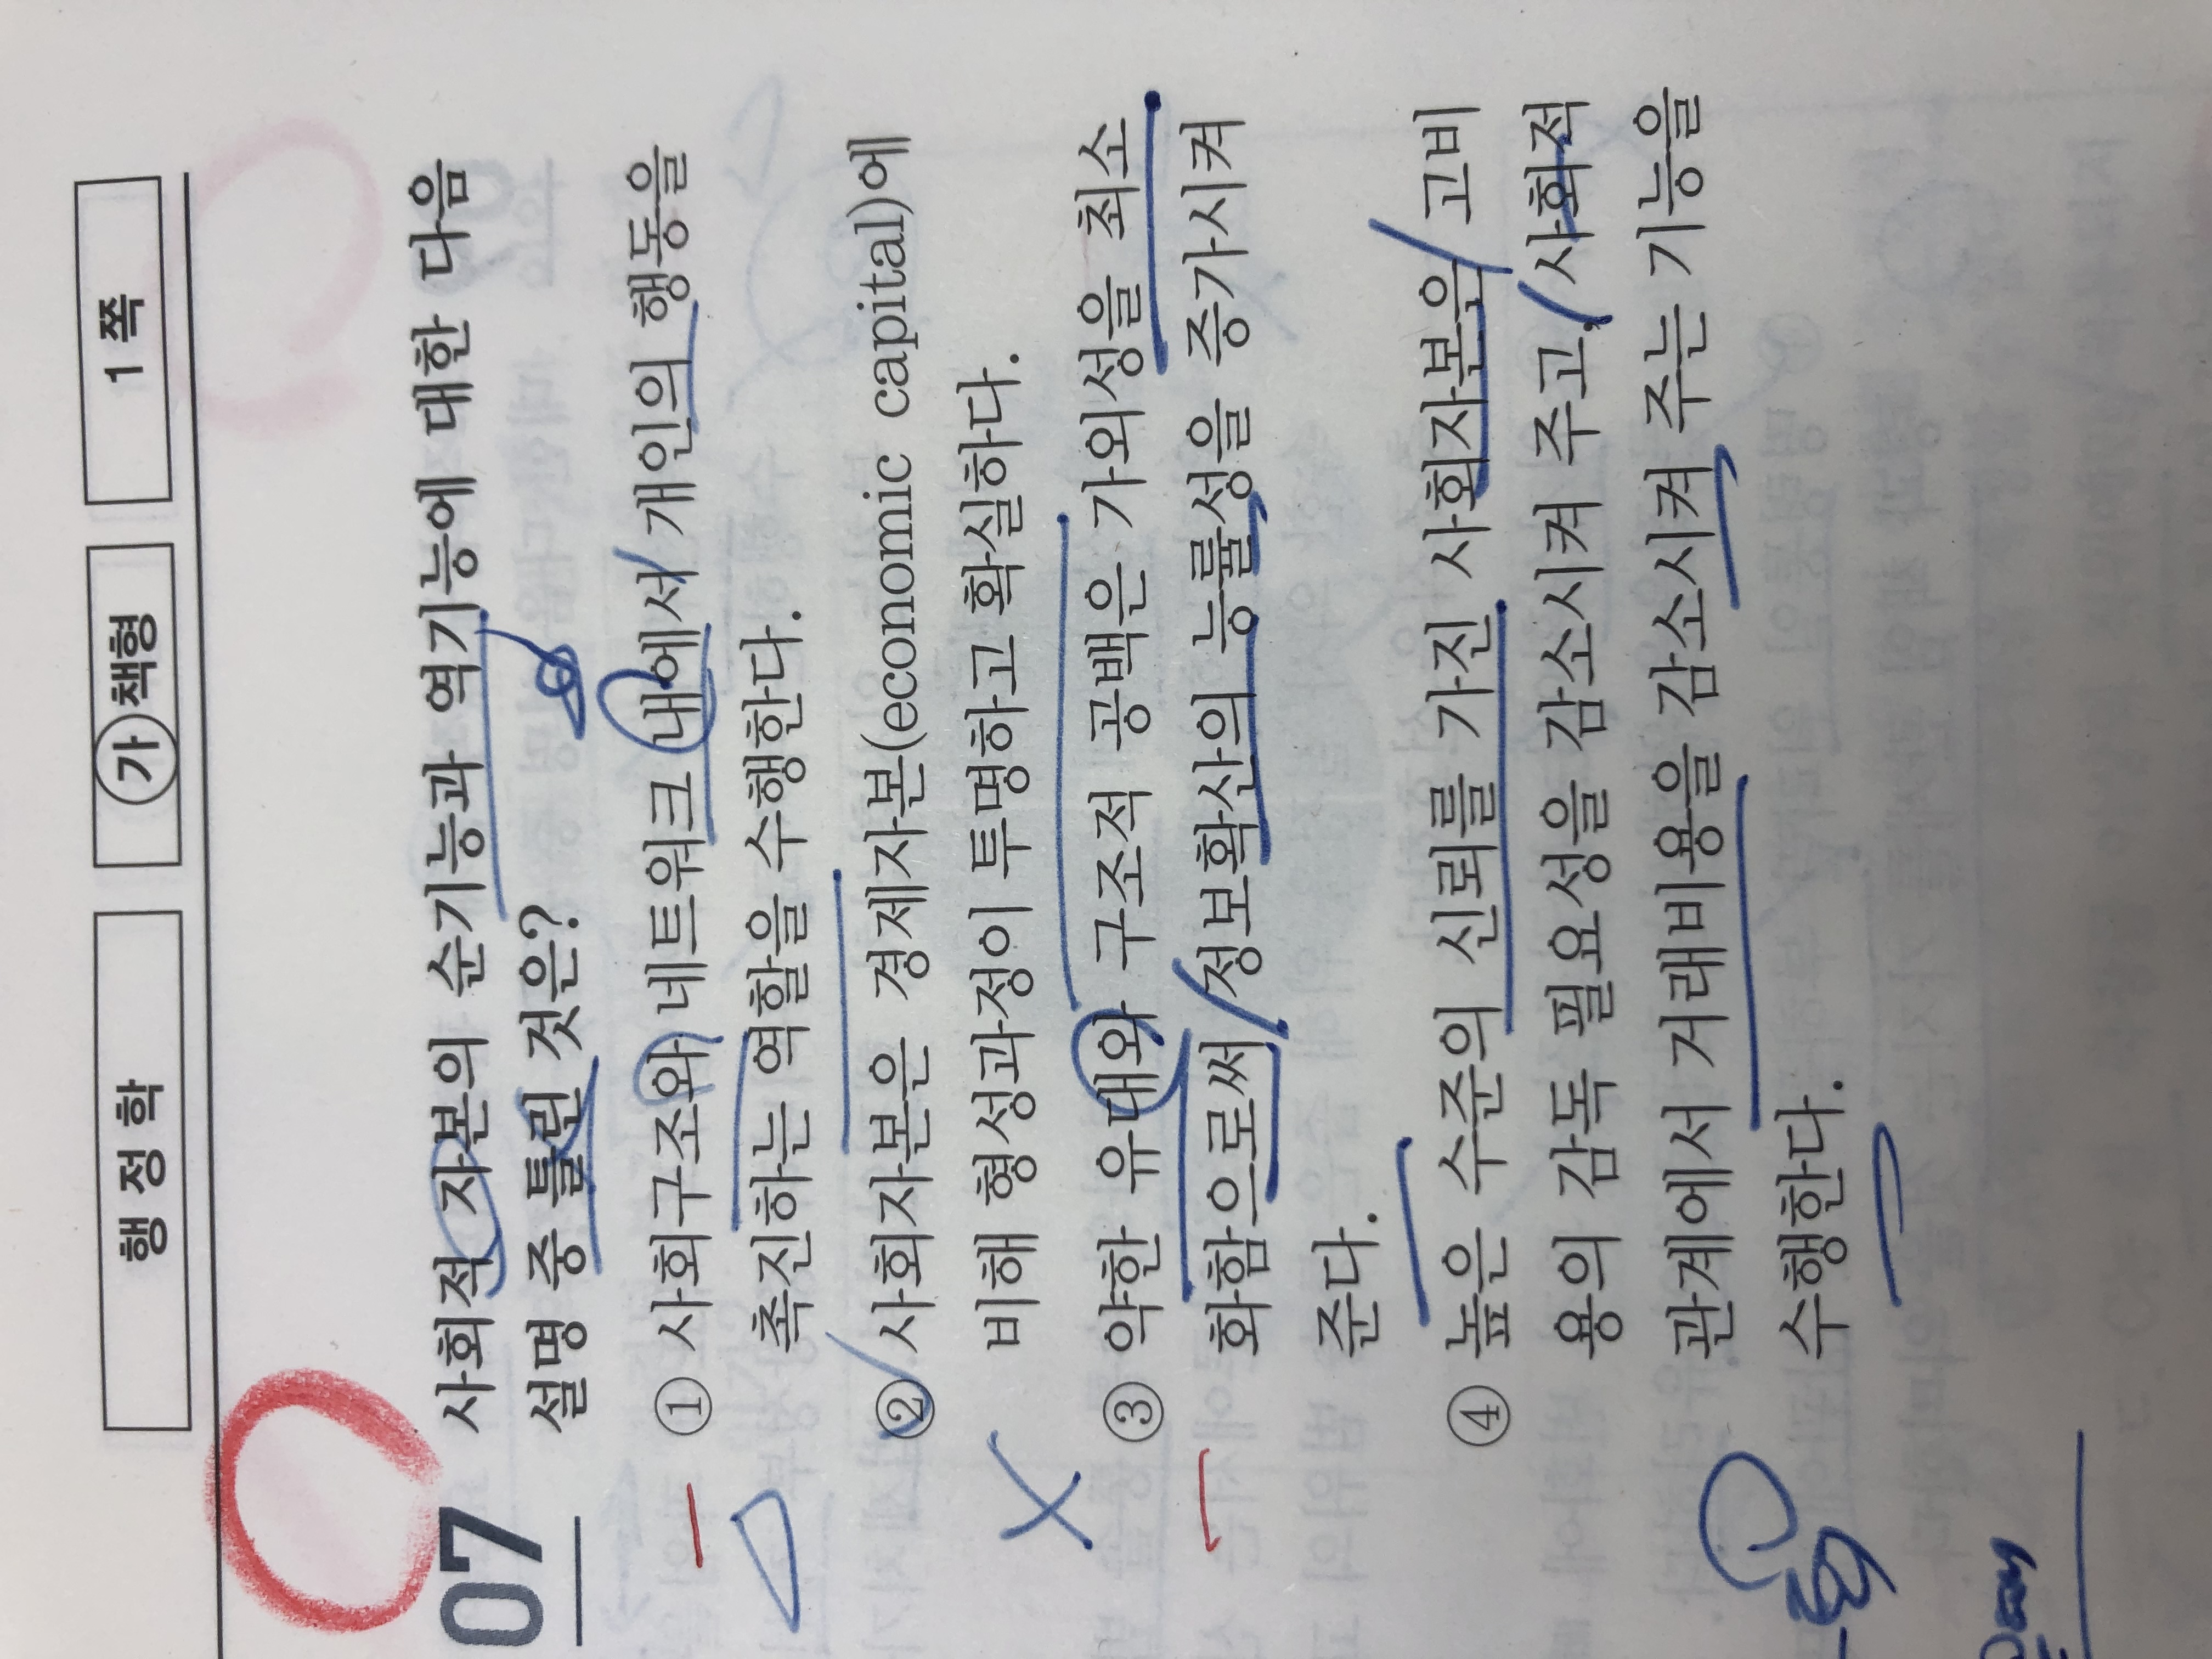 행정학 ㉮책형 1쪽
07 사회적 자본의 순기능과 역기능에 대한 다음
설명 중 틀린 것은?
① 사회구조와 네트워크 내에서 개인의 행동을
촉진하는 역할을 수행한다.
② 사회자본은 경제자본(economic capital)에
비해 형성과정이 투명하고 확실하다.
③ 약한 유대와 구조적 공백은 가외성을 최소
화함으로써 정보확산의 능률성을 증가시켜
준다.
④ 높은 수준의 신뢰를 가진 사회자본은 고비
용의 감독 필요성을 감소시켜 주고, 사회적
관계에서 거래비용을 감소시켜 주는 기능을
수행한다.